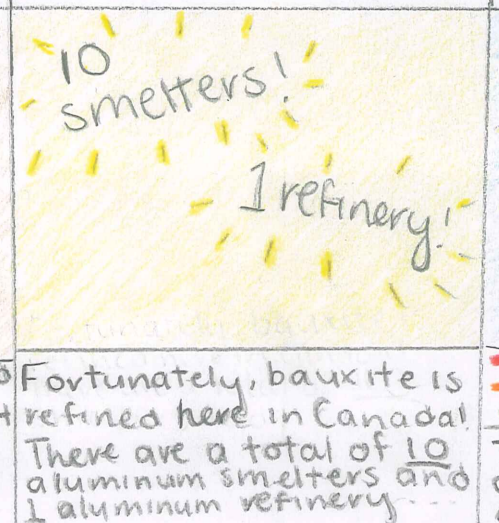 10
smelters!
1 refinery!
Fortunately, bauxite is
refined here in Canada!
There are a total of 10
aluminum smelters and
1 aluminum refinery